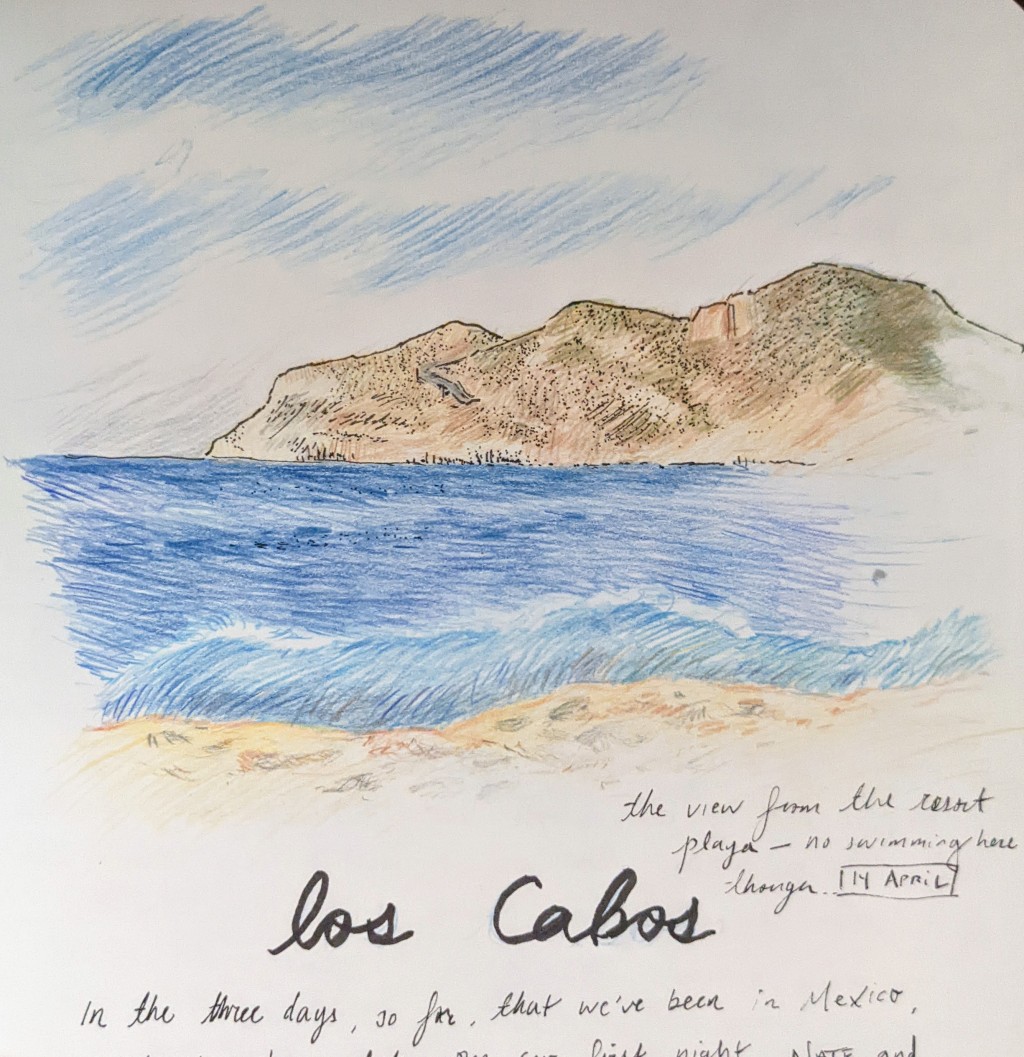 the view from the resort
playa — no swimming here
though.. 14 APRIL
los Cabos
In the three days, so far, that we've been in Mexico,
our first night, NATE and